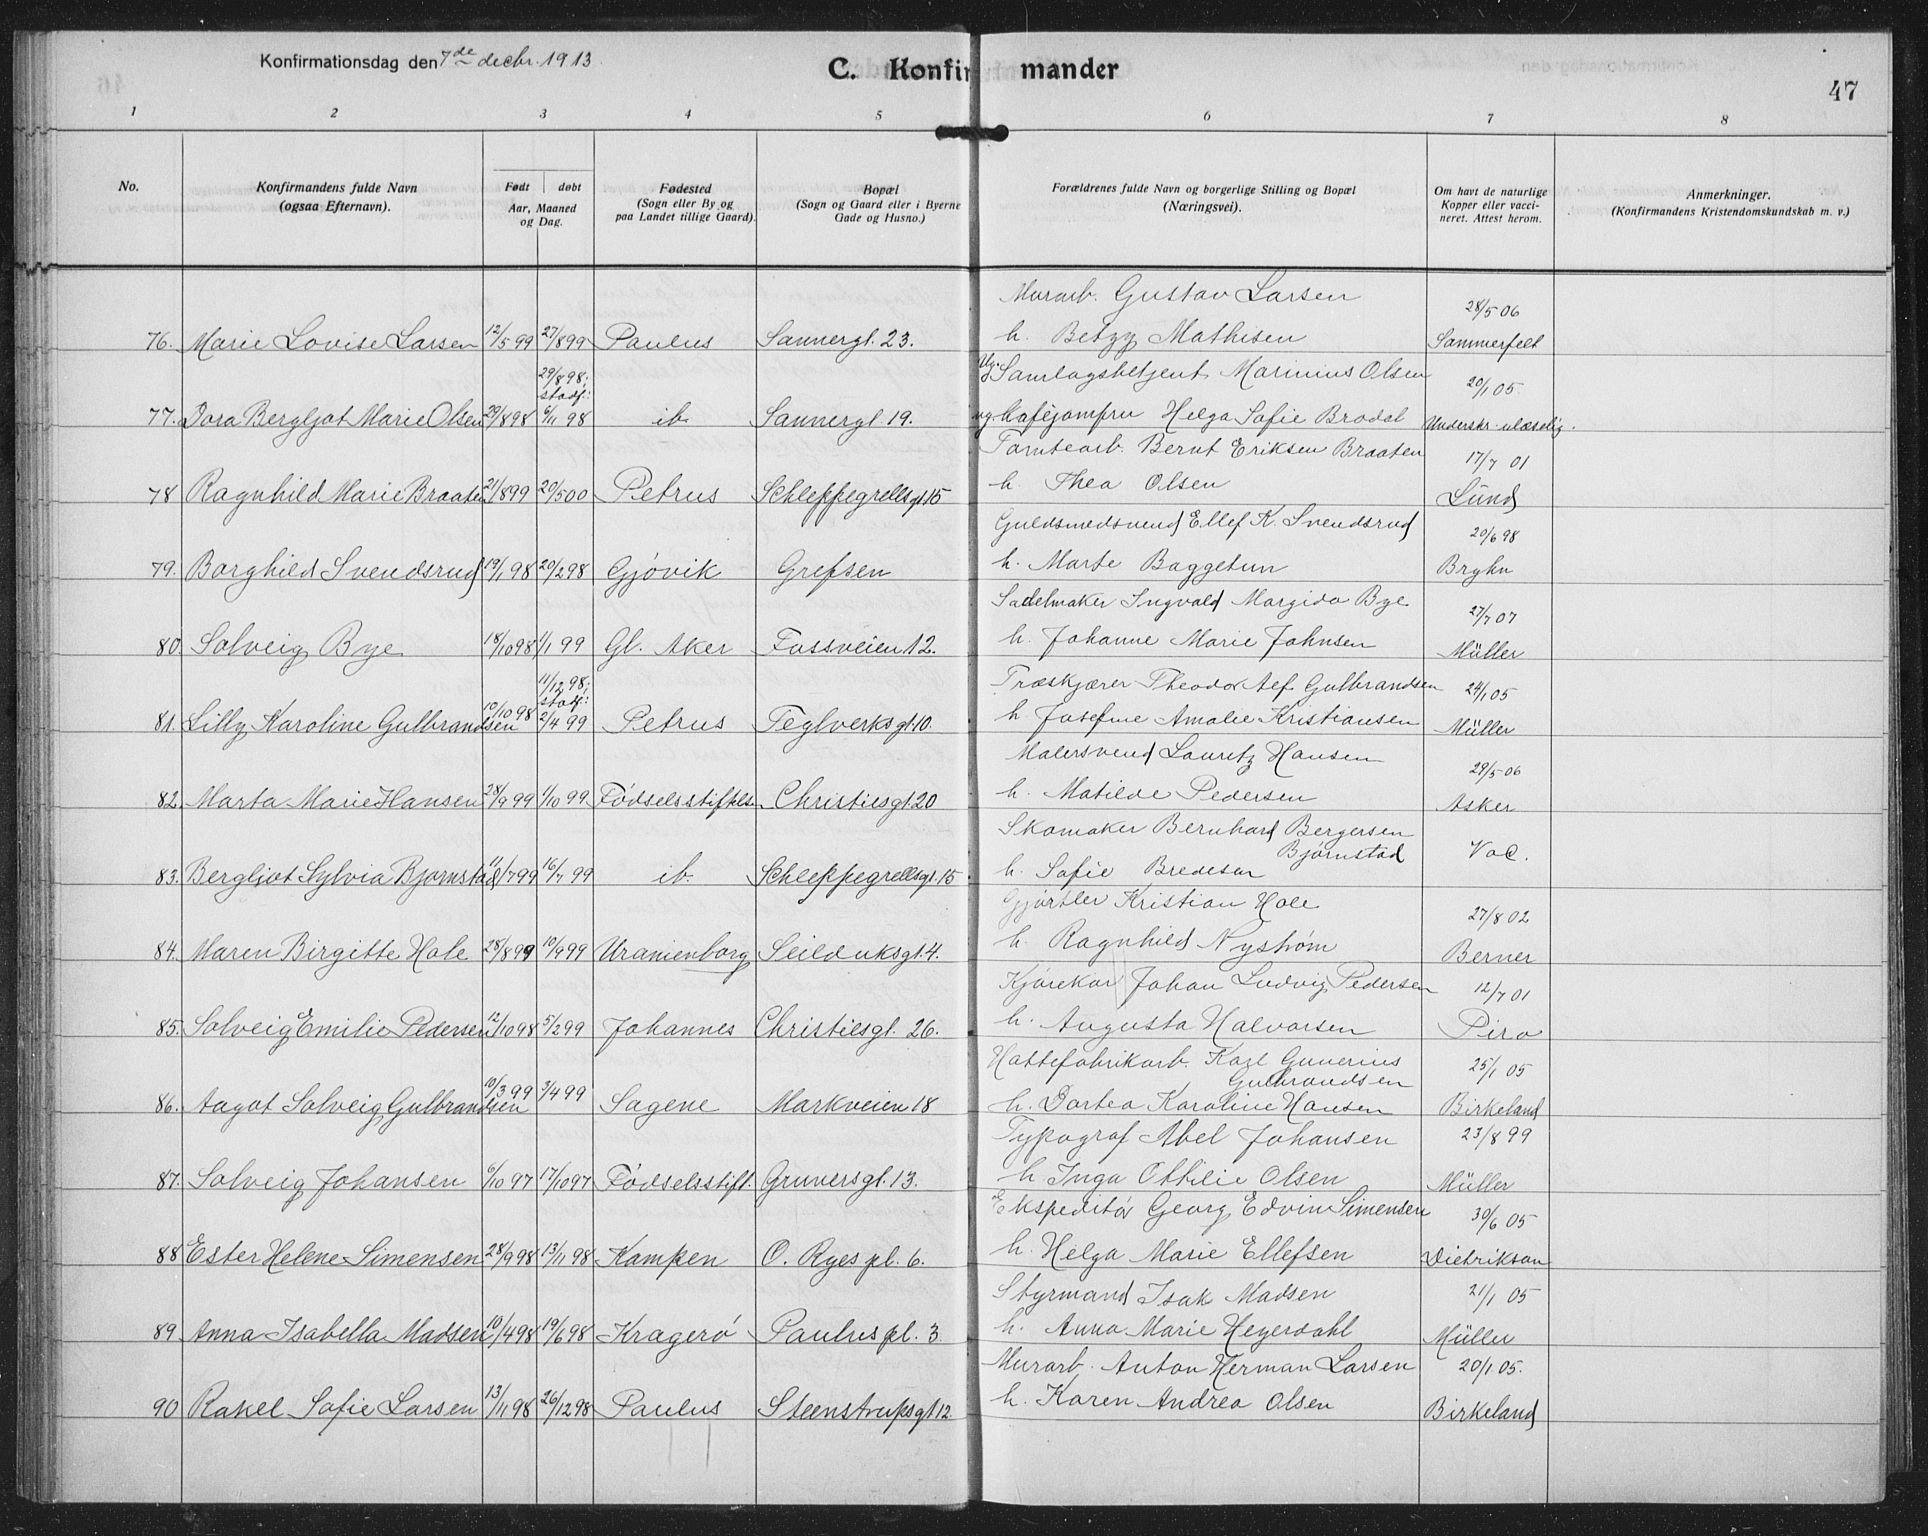 Konfirmationsdag den 7de decbr. 1913
C. Konfirmander
47
1 2 3 4 5 6 7 8
No.
Konfirmandens fulde Navn
(ogsaa Efternavn).
Født | døbt
Aar, Maaned
og Dag.
Fødested
(Sogn eller By og
paa Landet tillige Gaard).
Bopæl
(Sogn og Gaard eller i Byerne
Gade og Husno.)
Forældrenes fulde Navn og borgerlige Stilling og Bopæl
(Næringsvei).
Om havt de naturlige
Kopper eller vacci-
neret. Attest herom.
Anmerkninger.
(Konfirmandens Kristendomskundskab m. v.)
Murarb. Gustav Larsen 28/5 06
76. Marie Lovise Larsen 12/5 99 27/8 99 Paulus Sannergt. 23. h. Betzy Mathisen Sammerfelt
29/8 98; stadf: Ug. Samlagsbetjent Marinius Olsen 20/1 05
77. Dora Bergljot Marie Olsen 29/8 98 6/11 98 ib. Sannergt 19. ug. Kaféjomfru Helga Sofie Brodal Underskr. ulæselig.
Tomtearb. Bernt Eriksen Braaten 17/7 01
78 Ragnhild Marie Braaten 21/8 99 20/5 00 Petrus Schleppegrellsgt. 15 h. Thea Olsen Lund
Guldsmedsvend Ellef K. Svendsrud 20/6 98
79. Borghild Svendsrud 19/1 98 20/2 98 Gjövik Grefsen h. Marte Baggetun Bryhn
Sadelmaker Ingvald Margido Bye 27/7 07
80. Solveig Bye 18/10 98 1/1 99 Gl. Aker Fossveien 12. h. Johanne Marie Johnsen Müller
11/12 98; stadf: Træskjærer Theodor Alf. Gulbrandsen 24/1 05
81. Lilly Karoline Gulbrandsen 10/10 98 2/4 99 Petrus Teglverksgt. 10. h. Josefine Amalie Kristiansen Müller
Malersvend Lauritz Hansen 29/5 06
82. Marta Marie Hansen 28/9 99 1/10 99 Födselsstiftels. Christiesgt. 20 h. Matilde Pedersen Asker
Skomaker Bernhard Bergersen
Bjørnstad Vac.
83. Bergljot Sylvia Bjørnstad 11/7 99 16/7 99 ib. Schleppegrellsgt. 15 h. Sofie Bredesen
Gjørtler Kristian Hole 27/8 02
84. Maren Birgitte Hole 28/8 99 10/9 99 Uranienborg Seilduksgt. 4. h. Ragnhild Nystrøm Berner
Kjørekar Johan Ludvig Pedersen 12/7 01
85. Solveig Emilie Pedersen 12/10 98 5/2 99 Johannes Christiesgt. 26. h. Augusta Halvorsen Piro
Hattefabrikarb. Karl Gunerius 25/1 05
Gulbrandsen
86. Aagot Solveig Gulbrandsen 10/3 99 3/4 99 Sagene Markveien 18 h. Dortea Karoline Hansen Birkeland
Typograf Abel Johansen 23/8 99
87. Solveig Johansen 6/10 97 17/10 97 Födselsstift. Grunersgt. 13. h. Inga Othilie Olsen Müller
Ekspeditör Georg Edvin Simensen 30/6 05
88 Ester Helene Simensen 28/9 98 13/11 98 Kampen O. Ryes pl. 6. h. Helga Marie Ellefsen Dietrikson
Styrmand Isak Madsen 21/1 05
89. Anna Isabella Madsen 10/4 98 19/6 98 Kragerö Paulus pl. 3. h. Anna Marie Heyerdahl Müller
Murarb. Anton Herman Larsen 20/1 05.
90 Rakel Sofie Larsen 13/11 98 26/12 98 Paulus Steenstrupsgt 12. h. Karen Andrea Olsen Birkeland